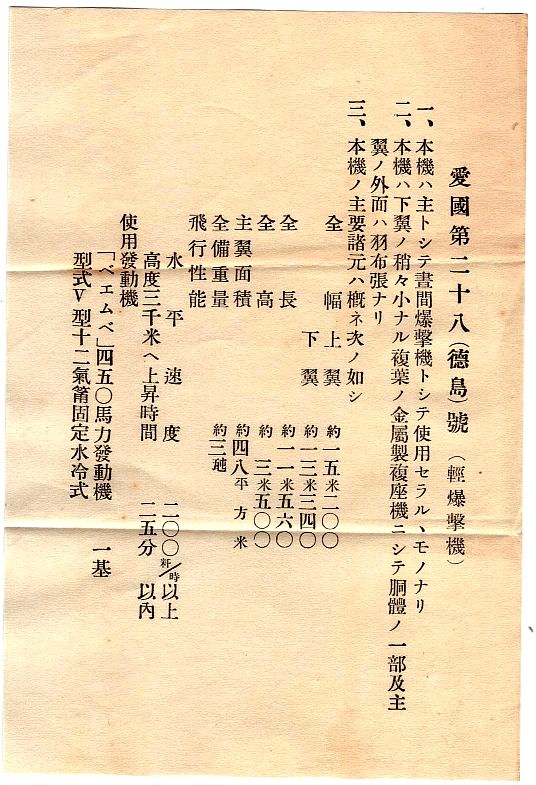 愛國第二十八(德島)號（輕爆擊機）
一、本機ハ主トシテ晝間爆擊機トシテ使用セラルヽモノナリ
二、本機ハ下翼ノ稍々小ナル複葉ノ金屬製複座機ニシテ胴體ノ一部及主
翼ノ外面ハ羽布張ナリ
三、本機ノ主要諸元ハ槪ネ次ノ如シ
全幅 上翼 約一五米二〇〇
下翼 約一三米三四〇
全長 約一一米五六〇
全高 約三米五〇〇
主翼面積 約四八平方米
全備重量 約三瓲
飛行性能
水平速度 二〇〇粁/時以上
高度三千米ヘ上昇時間 二五分以內
使用發動機
「ベエムベ」四五〇馬力發動機 一基
型式V型十二氣筩固定水冷式